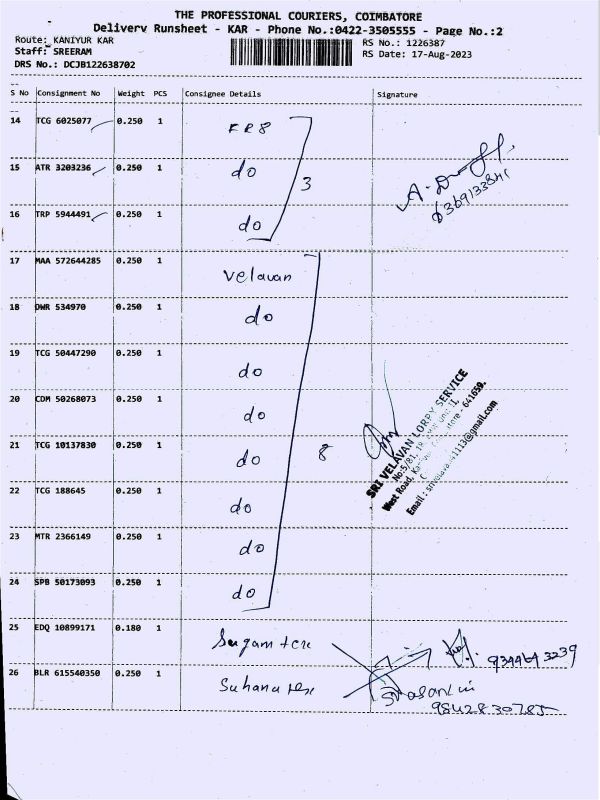 THE PROFESSIONAL COURIERS, COIMBATORE
Delivery Runsheet - KAR - Phone No.:0422-3505555 - Page No.:2
Route: KANIYUR KAR
RS No.: 1226387
Staff: SREERAM
RS Date: 17-Aug-2023
DRS No.: DCJB122638702
S No Consignment No Weight PCS Consignee Details Signature
14 TCG 6025077 0.250 1 FR8
15 ATR 3203236 0.250 1 do
3
16 TRP 5944491 0.250 1 do
17 MAA 572644285 0.250 1 Velavan
18 DWR 534970 0.250 1 do
19 TCG 50447290 0.250 1 do
20 CDM 50268073 0.250 1 do
21 TCG 10137830 0.250 1 do
8
SRI VELAVAN LORRY SERVICE
No:5/81,
West Road, - 641659.
Email :
22 TCG 188645 0.250 1 do
23 MTR 2366149 0.250 1 do
24 SPB 50173093 0.250 1 do
25 EDQ 10899171 0.180 1 Sugam tex
26 BLR 615540350 0.250 1 Suhana tex